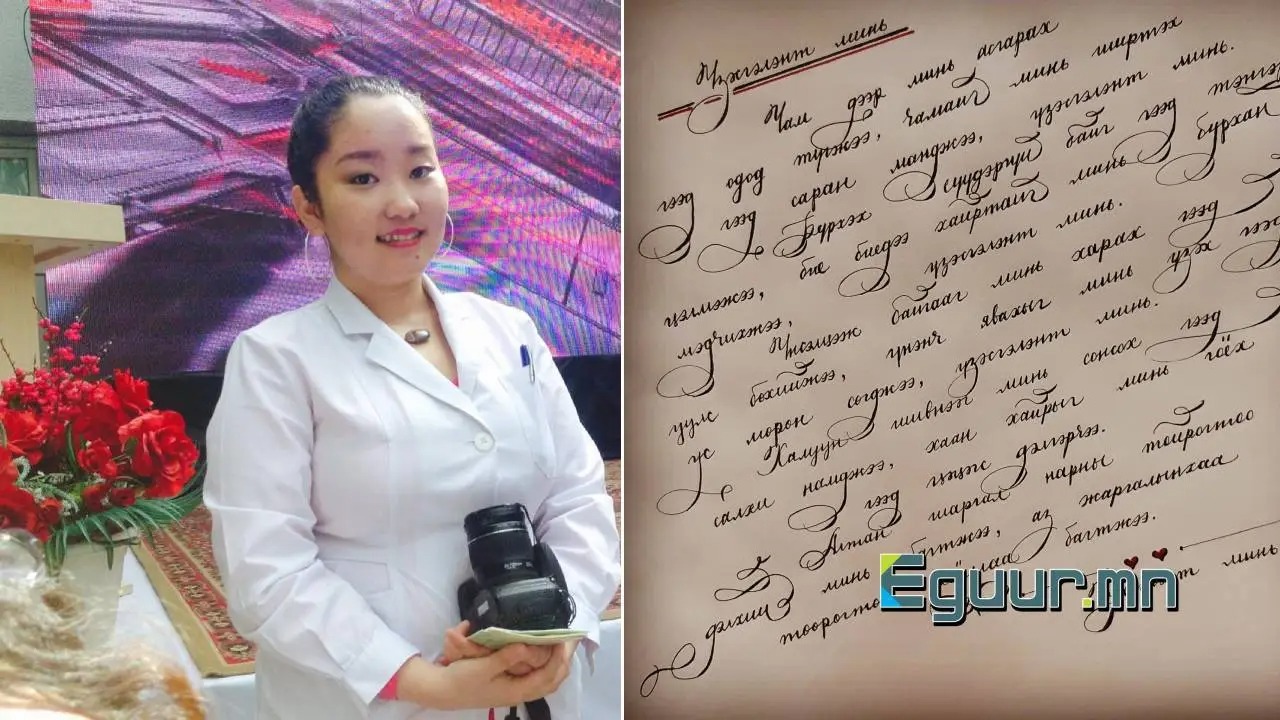 Үзэсгэлэнт минь
Чам дээр минь асгарах
гээд одод түгжээ, чамайг минь ширтэх
гээд саран манджээ, үзэсгэлэнт минь.
Бүрхэх сүүдэргүй байг гээд тэнгэр
цэлмэжээ, бие биедээ хайртайг минь бурхан
мэдчихжээ, үзэсгэлэнт минь.
байгааг минь харах гээд
уулс бөхийжээ, үнэнч явахыг минь үзэх гээд
ус мөрөн сөгджээ, үзэсгэлэнт минь.
Халуун шивнээг минь сонсох гээд
салхи намджээ, хаан хайрыг минь гоёх
гээд цэцэгс дэлгэрчээ.
Алтан шаргал нарны тойрогтоо
дэлхий минь багтжээ, аз жаргалынхаа
багтжээ.
минь
Eguur.mn